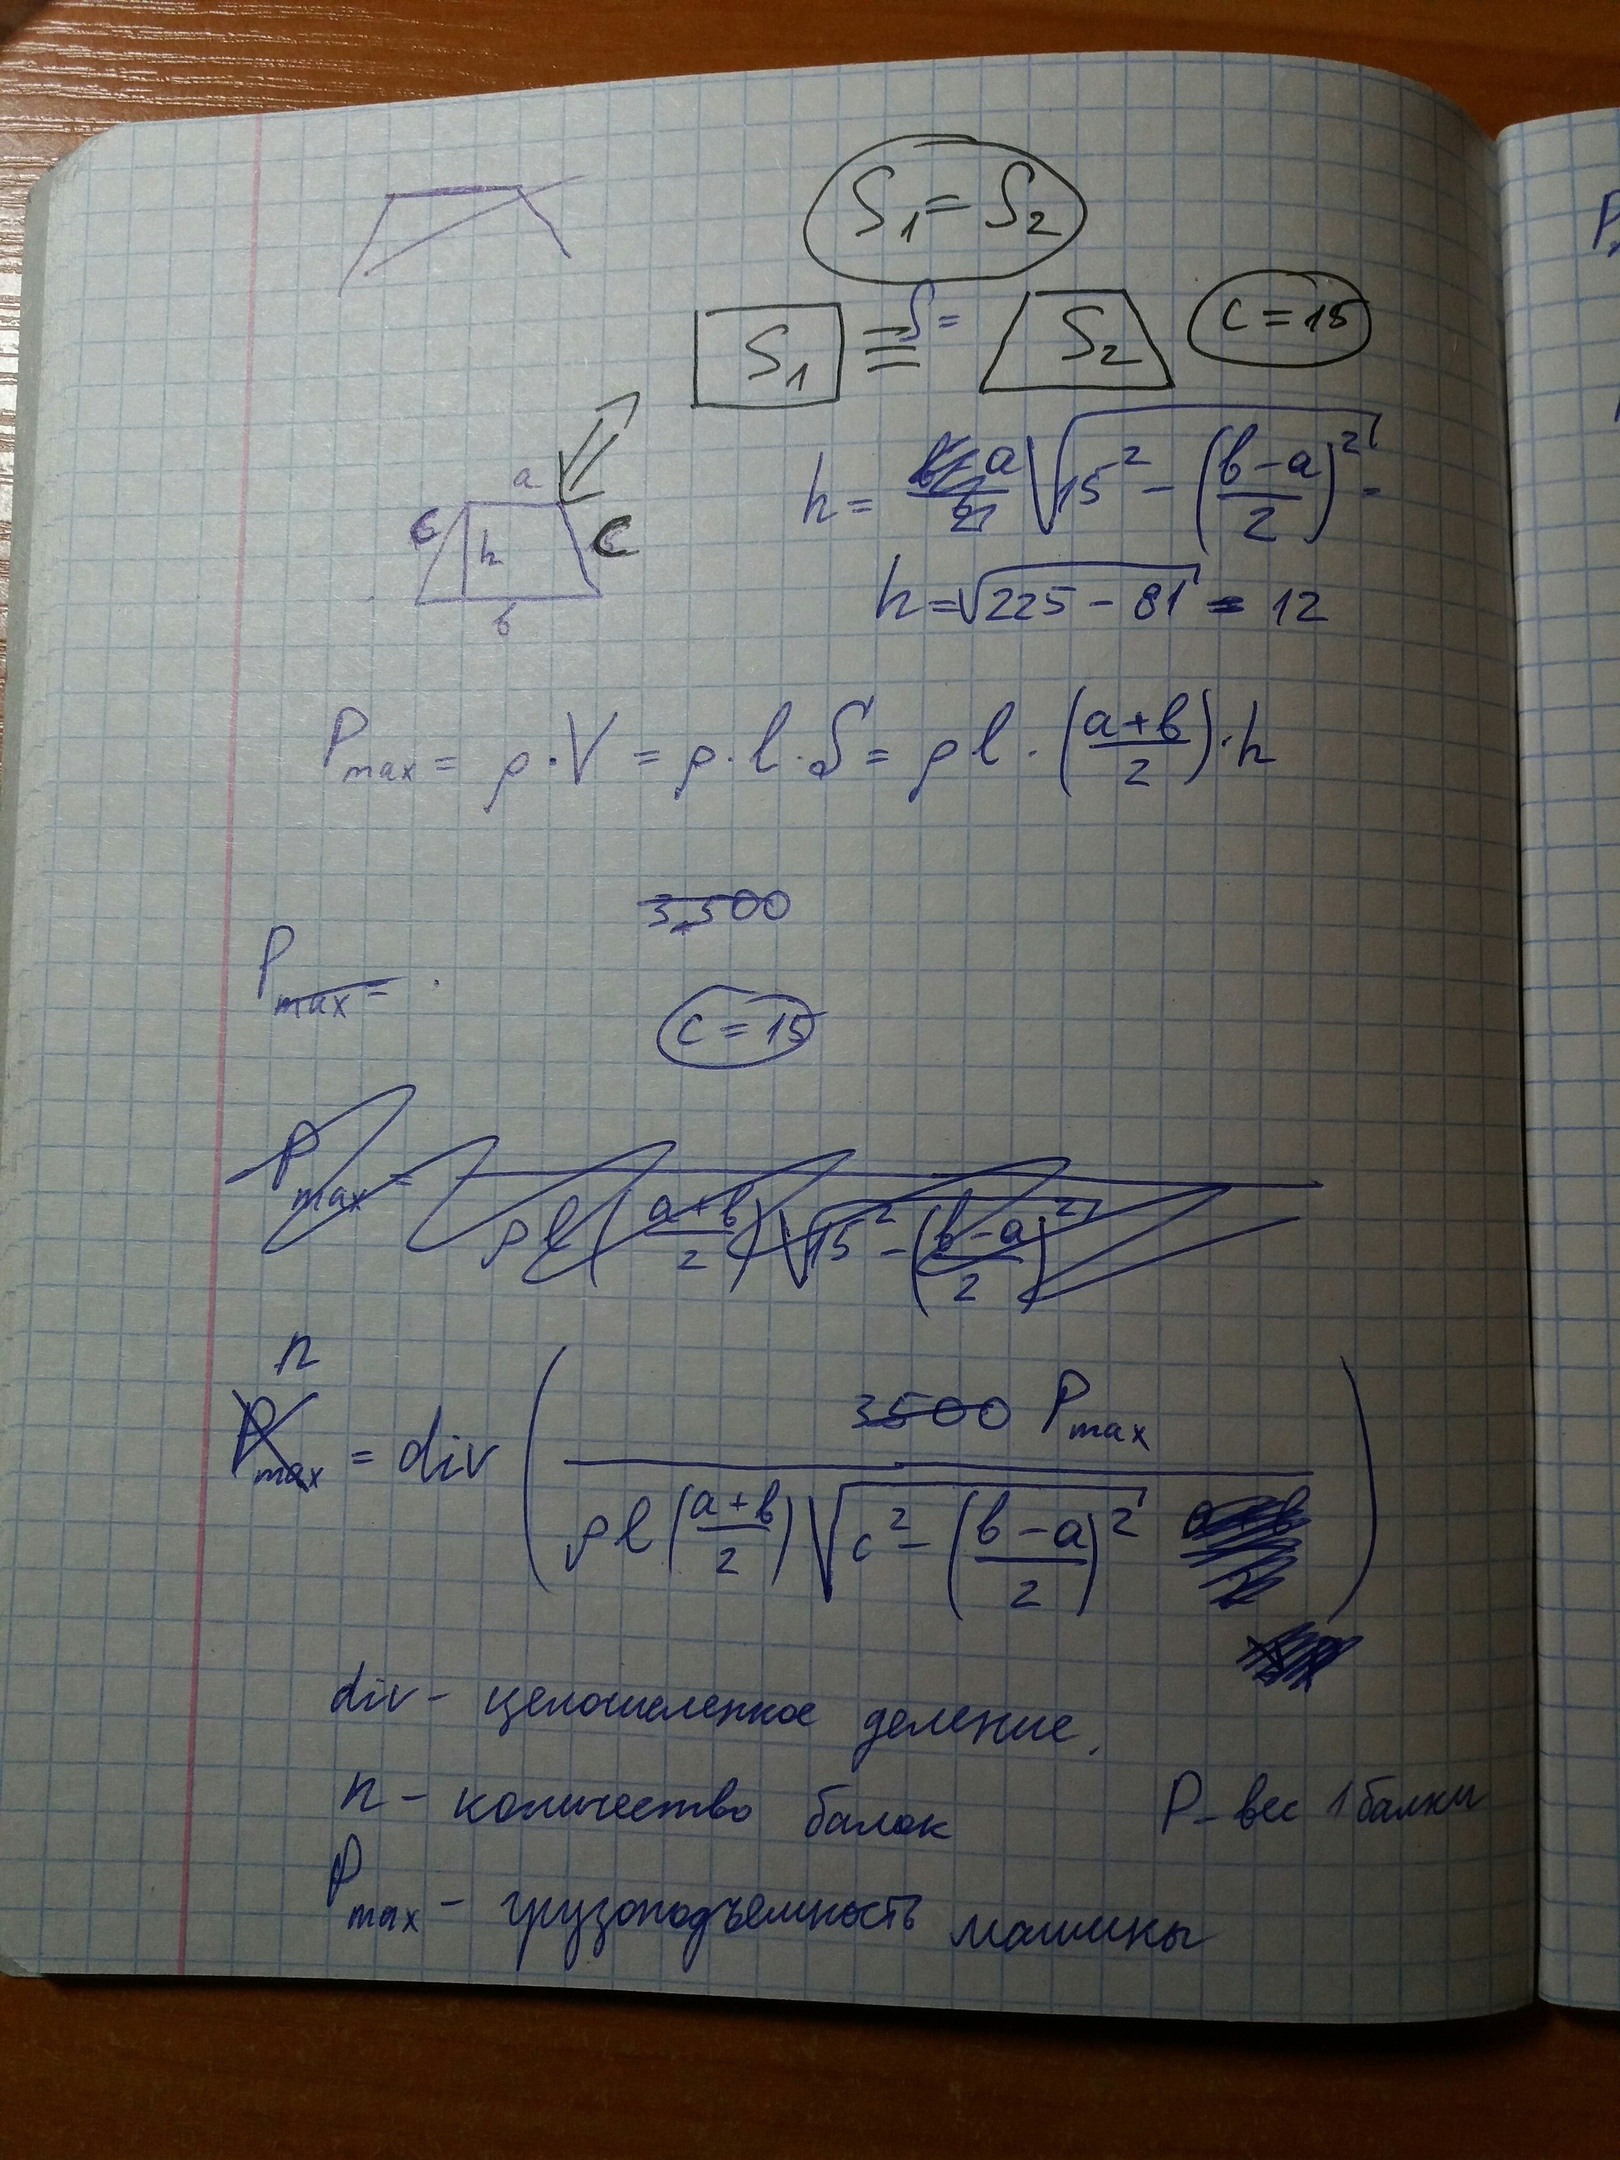 S₁ = S₂
S₁ ≡ S = S₂ c = 15
a
c h c
в
h = √(15² - ((в-a)/2)²) =
h = √(225 - 81) = 12
P max = ρ · V = ρ · l · S = ρ l · ((a+в)/2) · h
3,500
P max = .
c = 15
P max = ρ l ((a+в)/2) √(15² - ((в-a)/2)²)
n
P max = div ( 3500 P max / ρ l ((a+в)/2) √(c² - ((в-a)/2)²) )
div - целочисленное деление.
n - количество балок P - вес 1 балки
P max - грузоподъемность машины